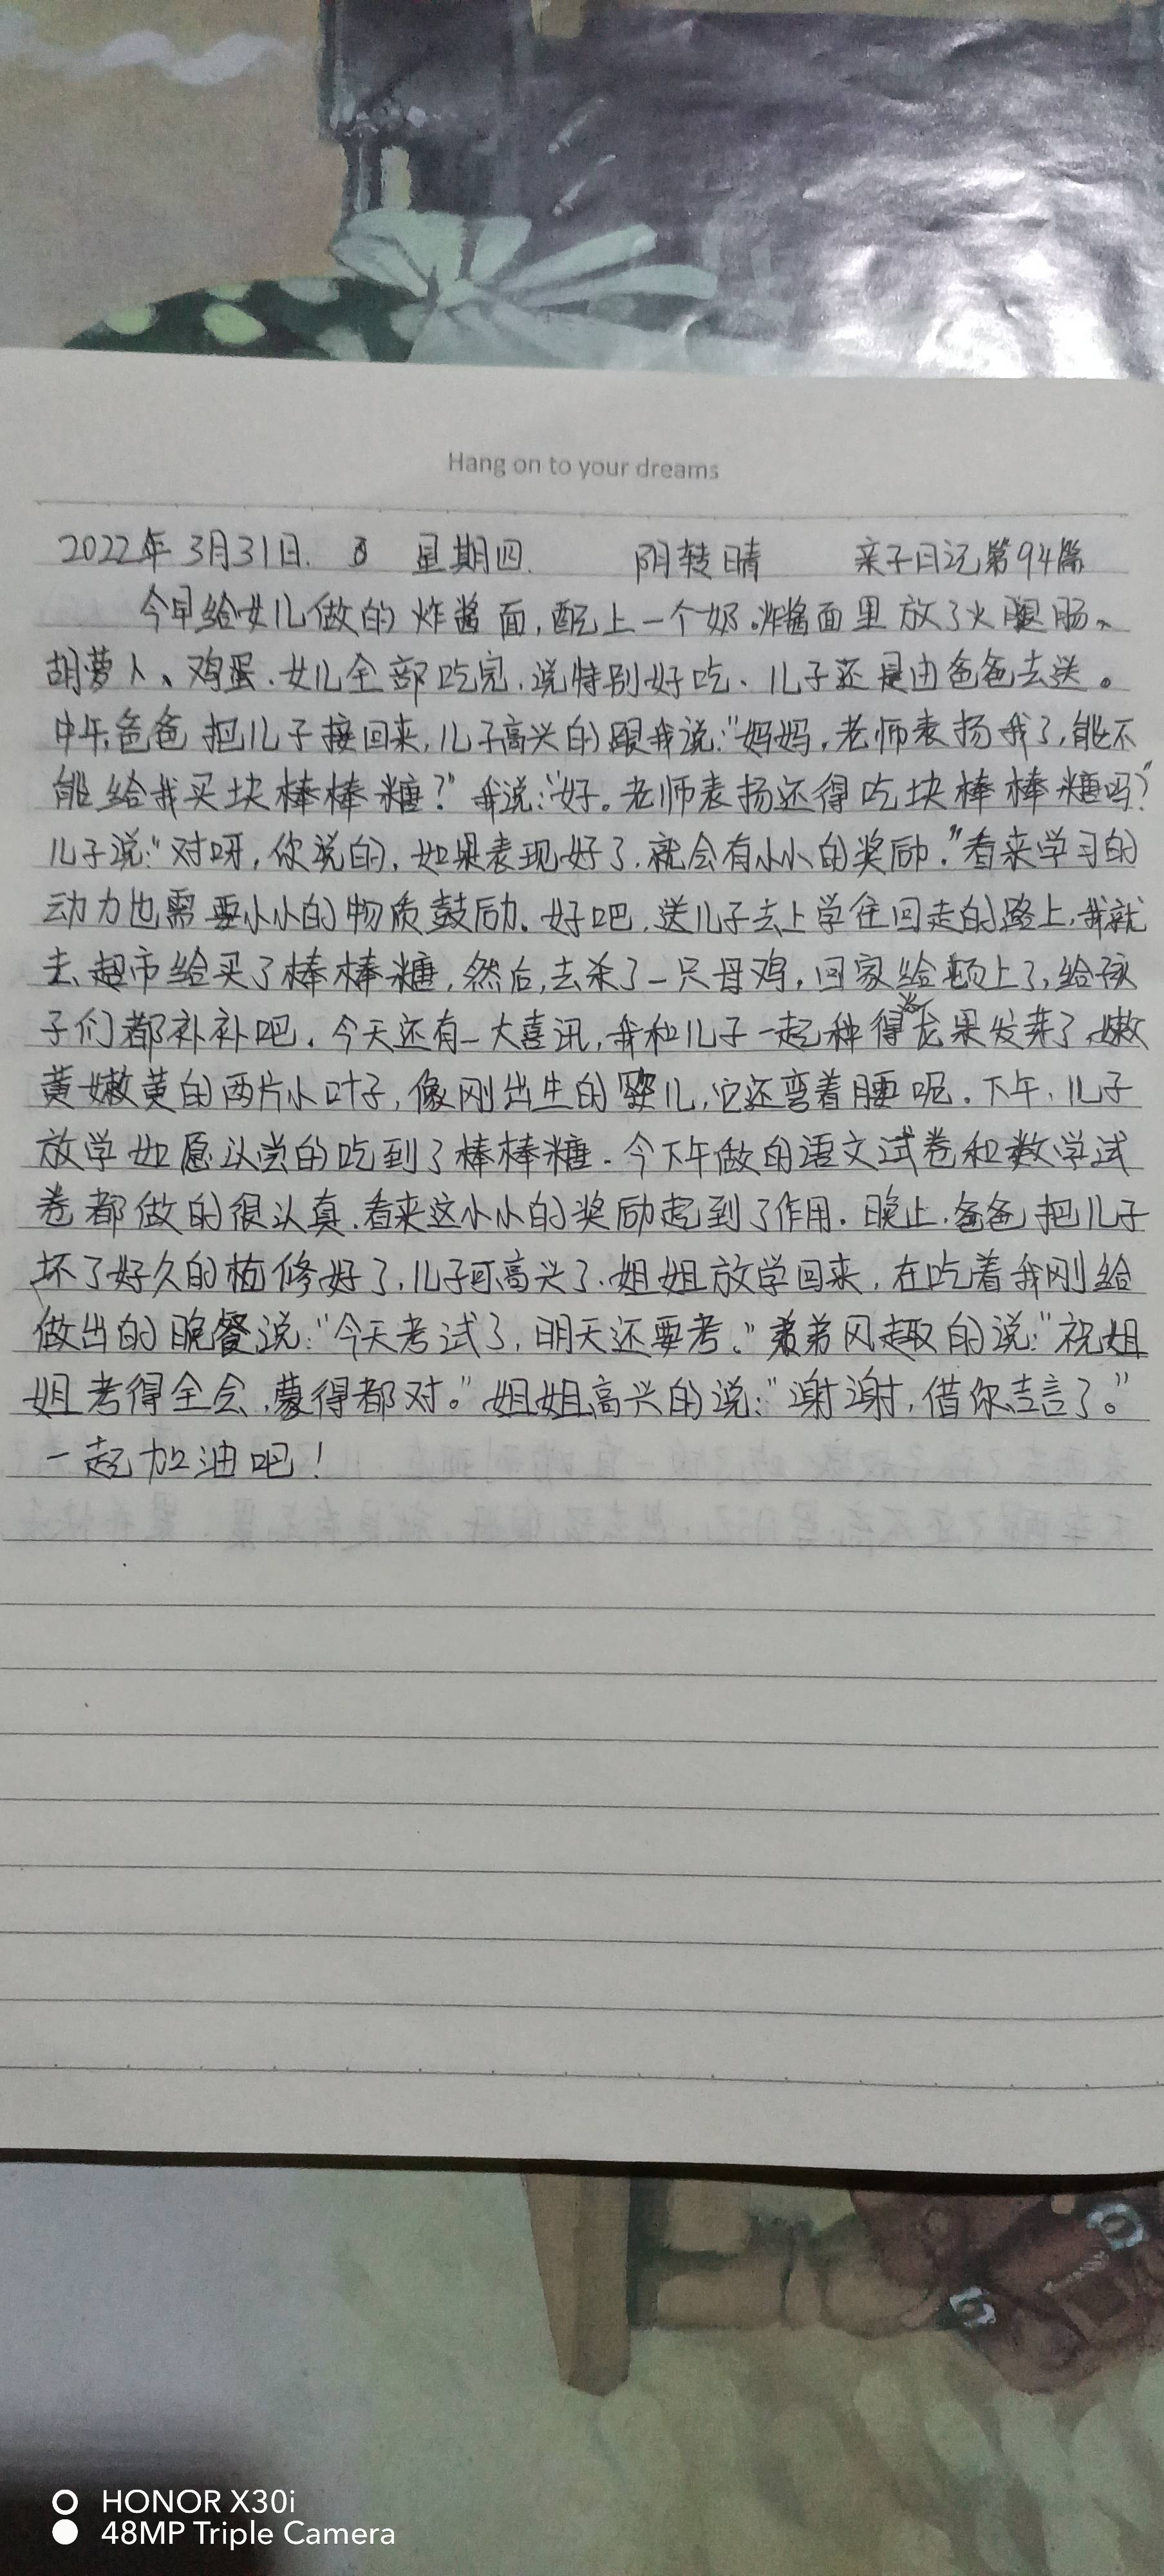 Hang on to your dreams
2022年3月31日. 星期四. 阴转晴 亲子日记第94篇
今早给女儿做的炸酱面,配上一个奶。炸酱面里放了火腿肠、
胡萝卜、鸡蛋.女儿全部吃完,说特别好吃、儿子还是由爸爸去送。
中午爸爸把儿子接回来,儿子高兴的跟我说:“妈妈,老师表扬我了,能不
能给我买块棒棒糖?”我说:“好。老师表扬还得吃块棒棒糖吗?”
儿子说:“对呀,你说的,如果表现好了,就会有小小的奖励.”看来学习的
动力也需要小小的物质鼓励.好吧,送儿子去上学往回走的路上,我就
去超市给买了棒棒糖,然后,去杀了一只母鸡,回家给顿上了,给孩
子们都补补吧.今天还有一大喜讯,我和儿子一起种得火龙果发芽了,嫩
黄嫩黄的两片小叶子,像刚出生的婴儿,它还弯着腰呢.下午,儿子
放学如愿以尝的吃到了棒棒糖.今下午做的语文试卷和数学试
卷都做的很认真.看来这小小的奖励起到了作用.晚上.爸爸把儿子
坏了好久的 修好了,儿子可高兴了.姐姐放学回来,在吃着我刚给
做出的晚餐说:“今天考试了,明天还要考。”弟弟风趣的说:“祝姐
姐考得全会,蒙得都对。”姐姐高兴的说:“谢谢,借你吉言了。”
一起加油吧!
HONOR X30i
48MP Triple Camera